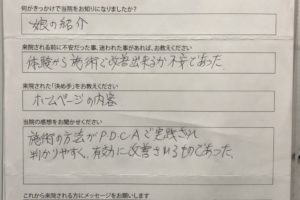 何がきっかけで当院をお知りになりましたか?
娘の紹介
来院される前に不安だった事、迷われた事があれば、お教えください
体験から施術で改善出来るか不安であった
来院された「決め手」をお教えください
ホームページの内容
当院の感想をお聞かせください
施術の方法がPDCAで実践され
判かりやすく、有効に改善されるものであった。
これから来院される方にメッセージをお願いします